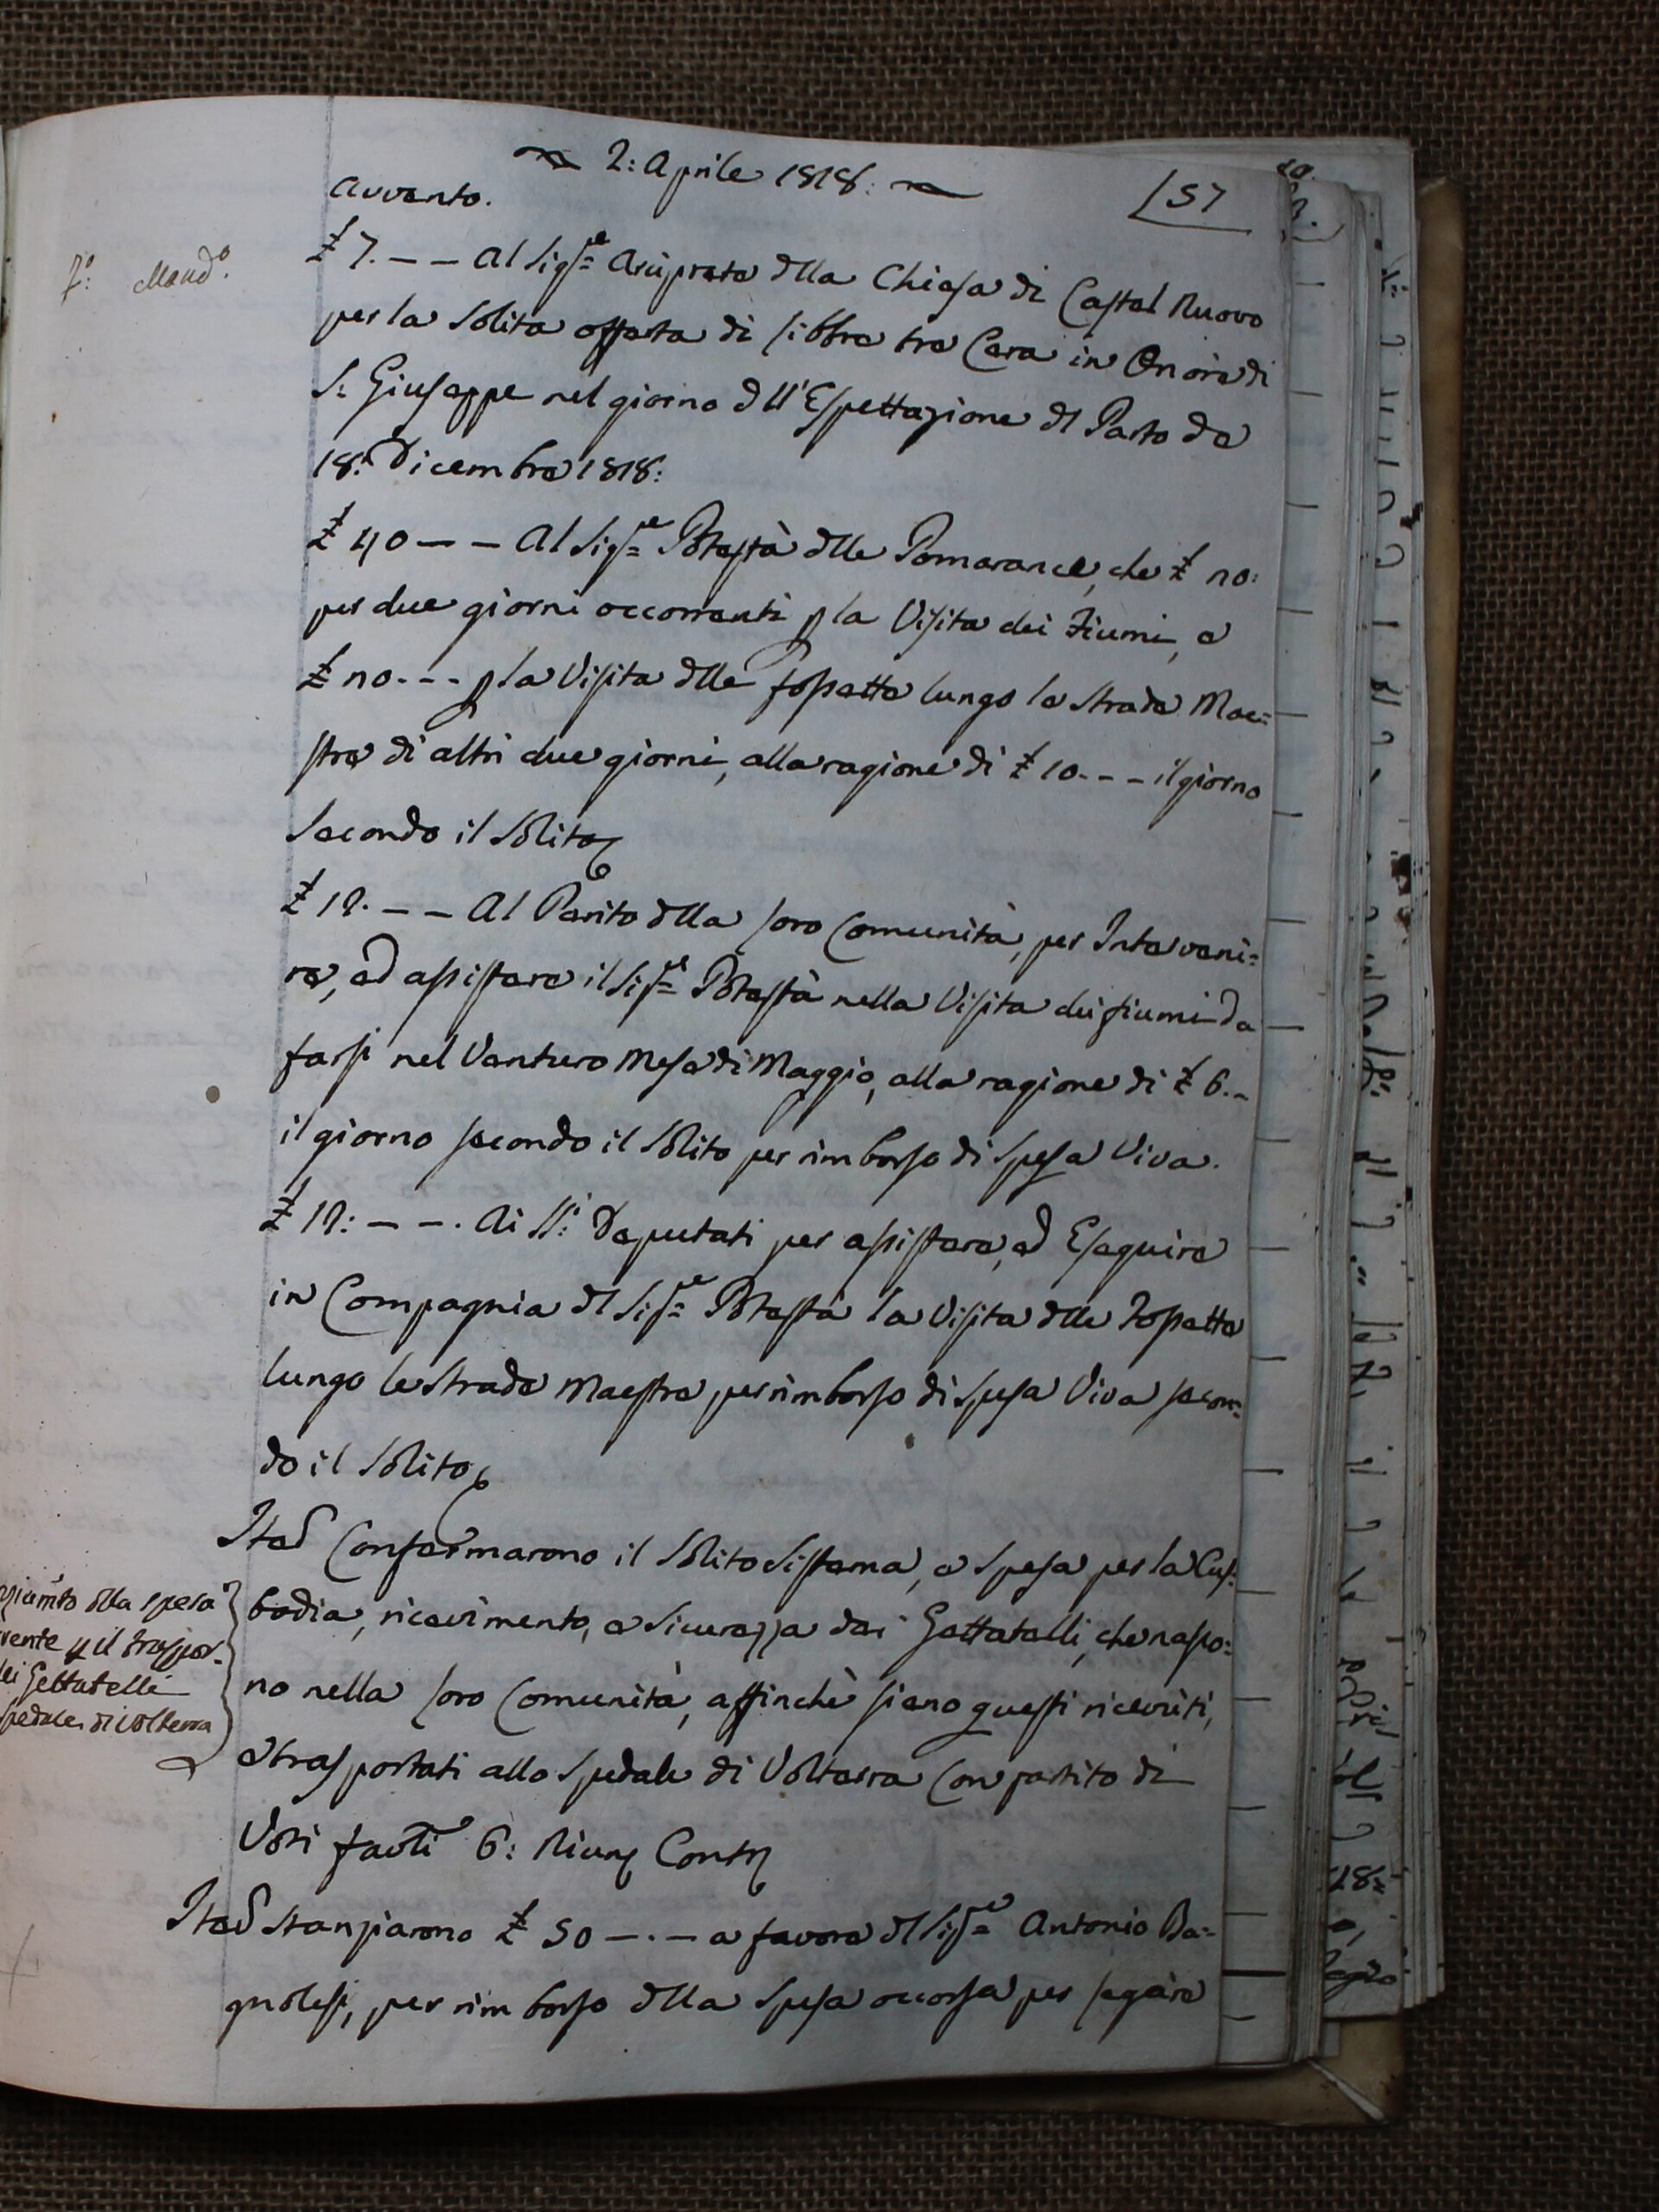 2: Aprile 1818:
57
avvento.
f: Mand.o
£ 7. — — Al Sig.re Arciprete dlla Chiesa di Castel Nuovo
per la Solita offerta di libbre tre Cera in Onore di
S: Giuseppe nel giorno dll' Espettazione dl Parto de
18: Dicembre 1818:
£ 40 — — Al Sig.re Potestà dlle Pomarance, che £ 20:
per due giorni occorrenti p la Visita dei Fiumi, e
£ 20. - - p la Visita dlle fossette lungo le Strade Mae=
stre di altri due giorni, alla ragione di £ 10. - - il giorno
Secondo il Solito
£ 12. — — Al Perito dlla loro Comunità, per Interveni=
re, ed assistere il Sig.re Potestà nella Visita dei fiumi da
farsi nel Venturo Mese di Maggio, alla ragione di £ 6. -
il giorno secondo il Solito per rimborso di Spesa Viva.
£ 12: — —. Ai SS.i Deputati per assistere, ed Eseguire
in Compagnia dl Sig.re Potestà la Visita dlle Fossette
lungo le Strade Maestre per rimborso di Spesa Viva secon=
do il Solito
Ited Confermarono il Solito Sistema, e Spesa per la Cus=
todia, ricevimento, e Sicurezza dei Gettatelli, che nasco=
no nella loro Comunità, affinchè sieno questi ricevuti,
e trasportati allo Spedale di Volterra Con partito di
Voti favoli 6: Niun Contr
dlla spesa
p il traspor=
Gettatelli
di Volterra
Ited Stanziarono £ 50 —. — a favore dl Sig.re Antonio Ba=
gnolesi, per rimborso dlla Spesa occorsa per segare